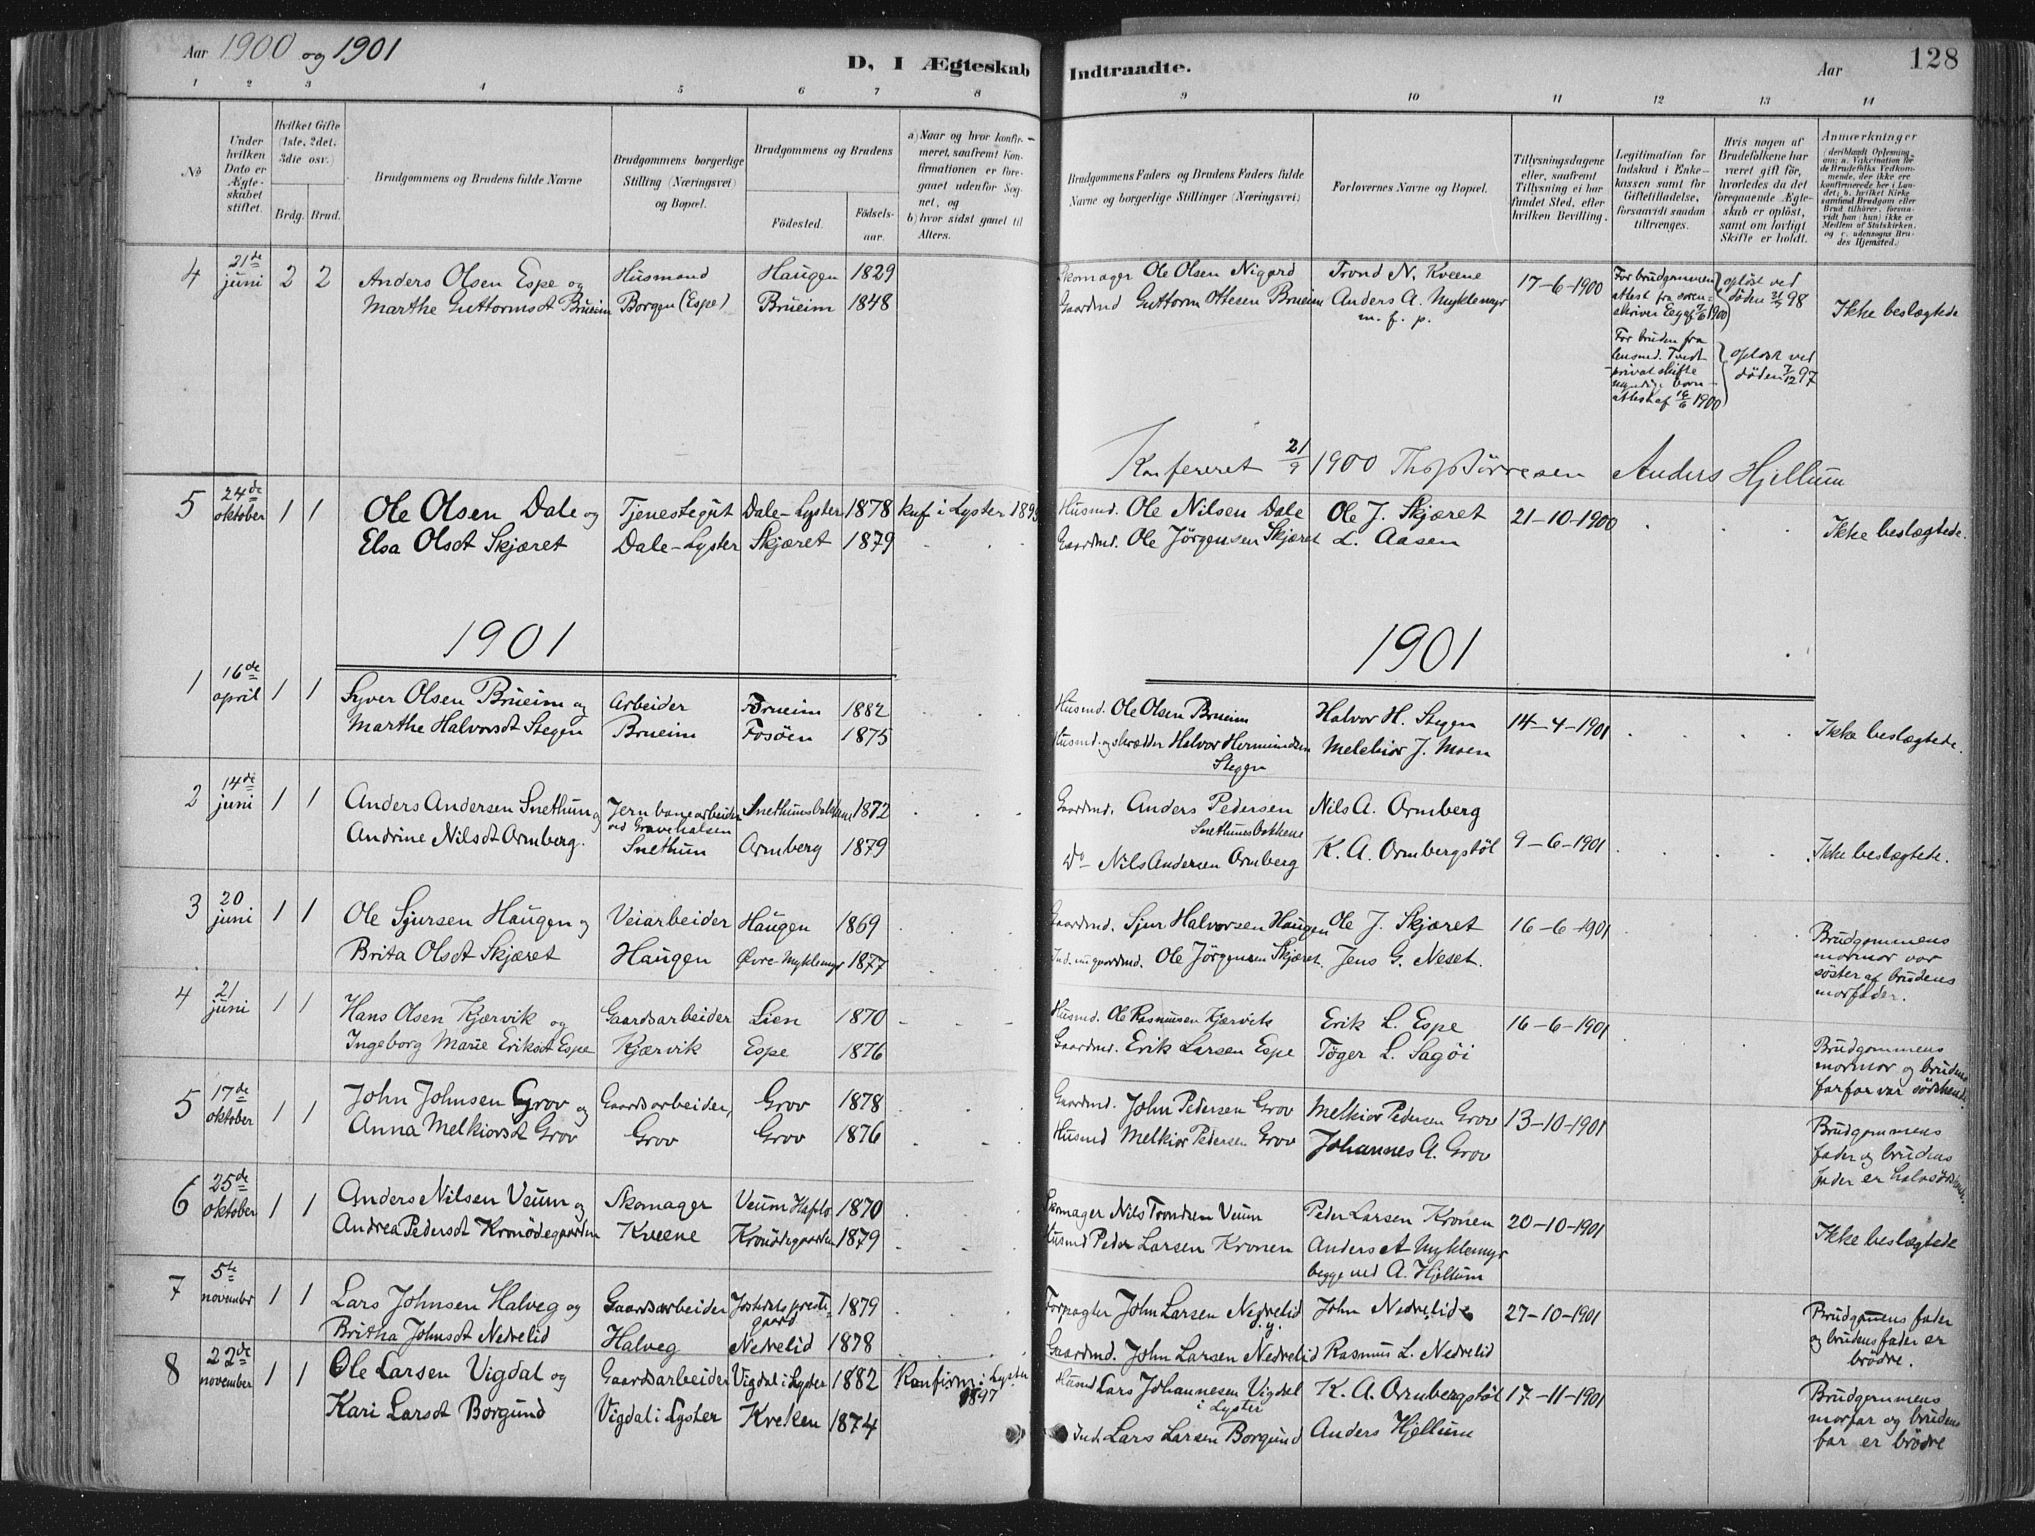 Aar 1900 og 1901
D, I Ægteskab Indtraadte.
Aar
128
1 2 3 4 5 6 7 8 9 10 11 12 13 14
No
Under hvilken Dato er Ægteskabet stiftet.
Hvilket Gifte (1ste, 2det, 3die osv.)
Brdg. Brud.
Brudgommens og Brudens fulde Navne
Brudgommens borgerlige Stilling (Næringsvei) og Bopæl.
Brudgommens og Brudens
Fødested. Fødselsaar.
a) Naar og hvor konfirmeret, saafremt Konfirmationen er foregaaet udenfor Sognet, og
b) hvor sidst gaaet til Alters.
Brudgommens Faders og Brudens Faders fulde Navne og borgerlige Stillinger (Næringsvei)
Forlovernes Navne og Bopæl.
Tillysningsdagene eller, saafremt Tillysning ei har fundet Sted, efter hvilken Bevilling.
Legitimation for Indskud i Enkekassen samt for Giftetilladelse, forsaavidt saadan tiltrænges.
Hvis nogen af Brudefolkene har været gift før, hvorledes da det foregaaende Ægteskab er opløst, samt om lovligt Skifte er holdt.
Anmærkninger
4 21de juni 2 2 Anders Olsen Espe og Husmand Haugen 1829 Skomager Ole Olsen Nigard Trond N. Kveene 17-6-1900
Marthe Guttormsdt Brueim Borgen (Espe) Brueim 1848 Gaardmd Guttorm Ottesen Brueim Anders A. Myklemyr
m. f. p.
For brudgommen attest fra sorenskriver 1900
opløst ved døden 98
For bruden fra lensmd. privat skifte attest af 16/6 1900
opløst ved døden 7/12 97
Ikke beslægtede
Konfereret 21/9 1900 Anders Hjellum
5 24de oktober 1 1 Ole Olsen Dale og Tjenestegut Dale-Lyster 1878 knf i Lyster Husmd. Ole Nilsen Dale Ole J. Skjæret 21-10-1900
Elsa Olsdt Skjæret Dale-Lyster Skjæret 1879 Gaardmd. Ole Jörgensen Skjæret L. Aasen Ikke beslægtede.
1901 1901
1 16de april 1 1 Syver Olsen Brueim og Arbeider 1882 Husmd. Ole Olsen Brueim Halvor H. Stegen 14-4-1901
Marthe Halvorsdt Stegen Brueim Fosöen 1875 Husmd. og skrædder Halvor Hermundsen Stegen Melchior J. Moen Ikke beslægtede.
2 14de juni 1 1 Anders Andersen Snethun og Jernbanearbeider ved Gravehalsen Snethunsbakkene 1872 Gaardmd. Anders Pedersen Snethunsbakkene Nils A. Ormberg 9-6-1901
Andrine Nilsdt Ormberg. Snethun Ormberg 1879 Do Nils Andersen Ormberg K. A. Ormbergstöl Ikke beslægtede.
3 20 juni 1 1 Ole Sjursen Haugen og Veiarbeider Haugen 1869 Gaardmd. Sjur Halvorsen Haugen Ole J. Skjæret 16-6-1901
Brita Olsdt Skjæret Haugen Øvre-Myklemyr 1877 Ole Jörgensen Skjæret. Jens G. Neset.
Brudgommens mormor var söster af brudens morfader.
4 21 juni 1 1 Hans Olsen Kjærvik og Gaardsarbeider Lien 1870 Husmd. Ole Rasmusen Kjærvik Erik L. Espe 16-6-1901
Ingeborg Marie Eriksdt Espe Kjærvik Espe 1876 Gaardmd. Erik Larsen Espe Töger L. Sagöi
Brudgommens mormor og brudens farfar var södskende.
5 17de oktober 1 1 John Johnsen Grov og Gaardsarbeider, Grov 1878 Gaardmd. John Pedersen Grov Melkior Pedersen Grov 13-10-1901
Anna Melkiorsdt Grov Grov Grov 1876 Husmd Melkior Pedersen Grov Johannes A. Grov
Brudgommens fader og brudens fader er halvsödskende.
6 25de oktober 1 1 Anders Nilsen Veum og Skomager Veum Hafslo 1870 Skomager Nils Trondsen Veum Peder Larsen Kronen 20-10-1901
Andrea Pedersdt Kronödegaarden Kveene Kronödegaarden 1879 Husmd Peder Larsen Kronen Anders A Myklemyr
begge ved A. Hjellum Ikke beslægtede
7 5te november 1 1 Lars Johnsen Halveg og Gaardsarbeider Jostedals prestegaard 1879 Forpagter John Larsen Nedrelid John Nedrelid 27-10-1901
Britha Johnsdt Nedrelid Halveg Nedrelid 1878 Gaardmd. John Larsen Nedrelid Rasmus L. Nedrelid
Brudgommens fader og brudens fader er brödre.
8 22de november 1 1 Ole Larsen Vigdal og Gaardsarbeider Vigdal i Lyster 1882 Konfirm. i Lyster 1897 Husmd Lars Johannesen Vigdal i Lyster K. A. Ormbergstöl 17-11-1901
Kari Larsdt Borgund Vigdal i Lyster Kreken 1874 Ind. Lars Larsen Borgund Anders Hjellum
Brudgommens morfar og brudens far er brödre